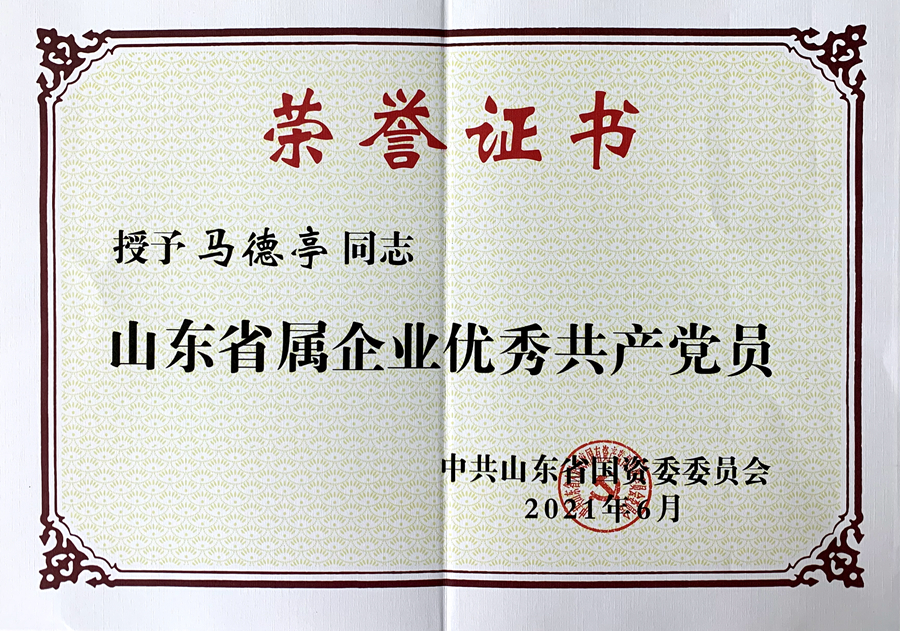 荣誉证书
授予马德亭同志
山东省属企业优秀共产党员
中共山东省国资委委员会
2021年6月